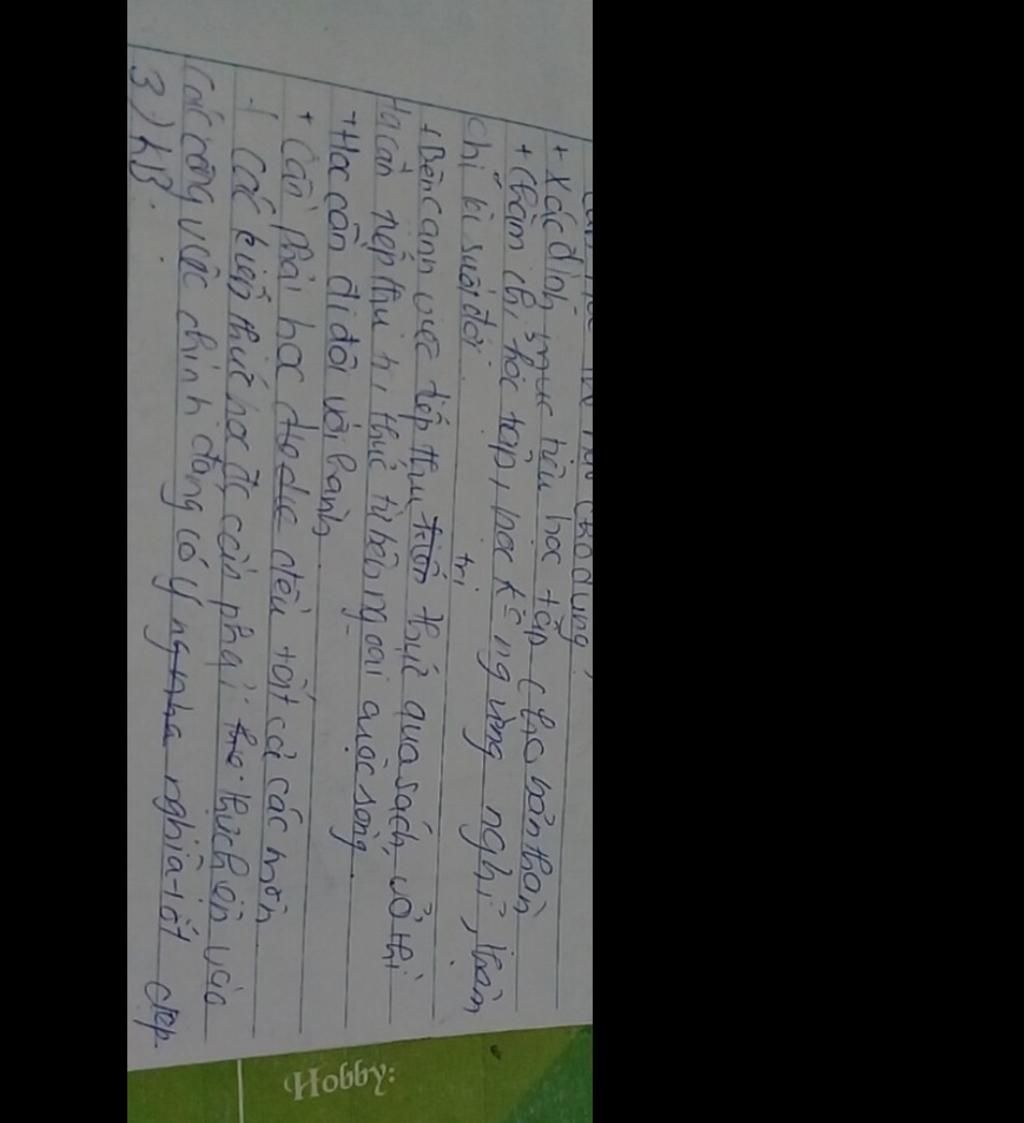 cho đúng
+ Xác định mục tiêu học tập cho bản thân
+ Chăm chỉ học tập, học k ngừng nghỉ, thậm
chí là suốt đời.
tri
+ Bên cạnh việc tiếp thu thức qua sách, vở thì
ta cần tiếp thu tri thức từ bên ngoài cuộc sống
+ Học cần đi đôi với hành
+ Cần phải học đều tất cả các môn
+ Các kiến thức học đc cần phải thực hiện vào
các công việc chính đáng có ý nghĩa tốt đẹp.
3) KB.
Hobby: